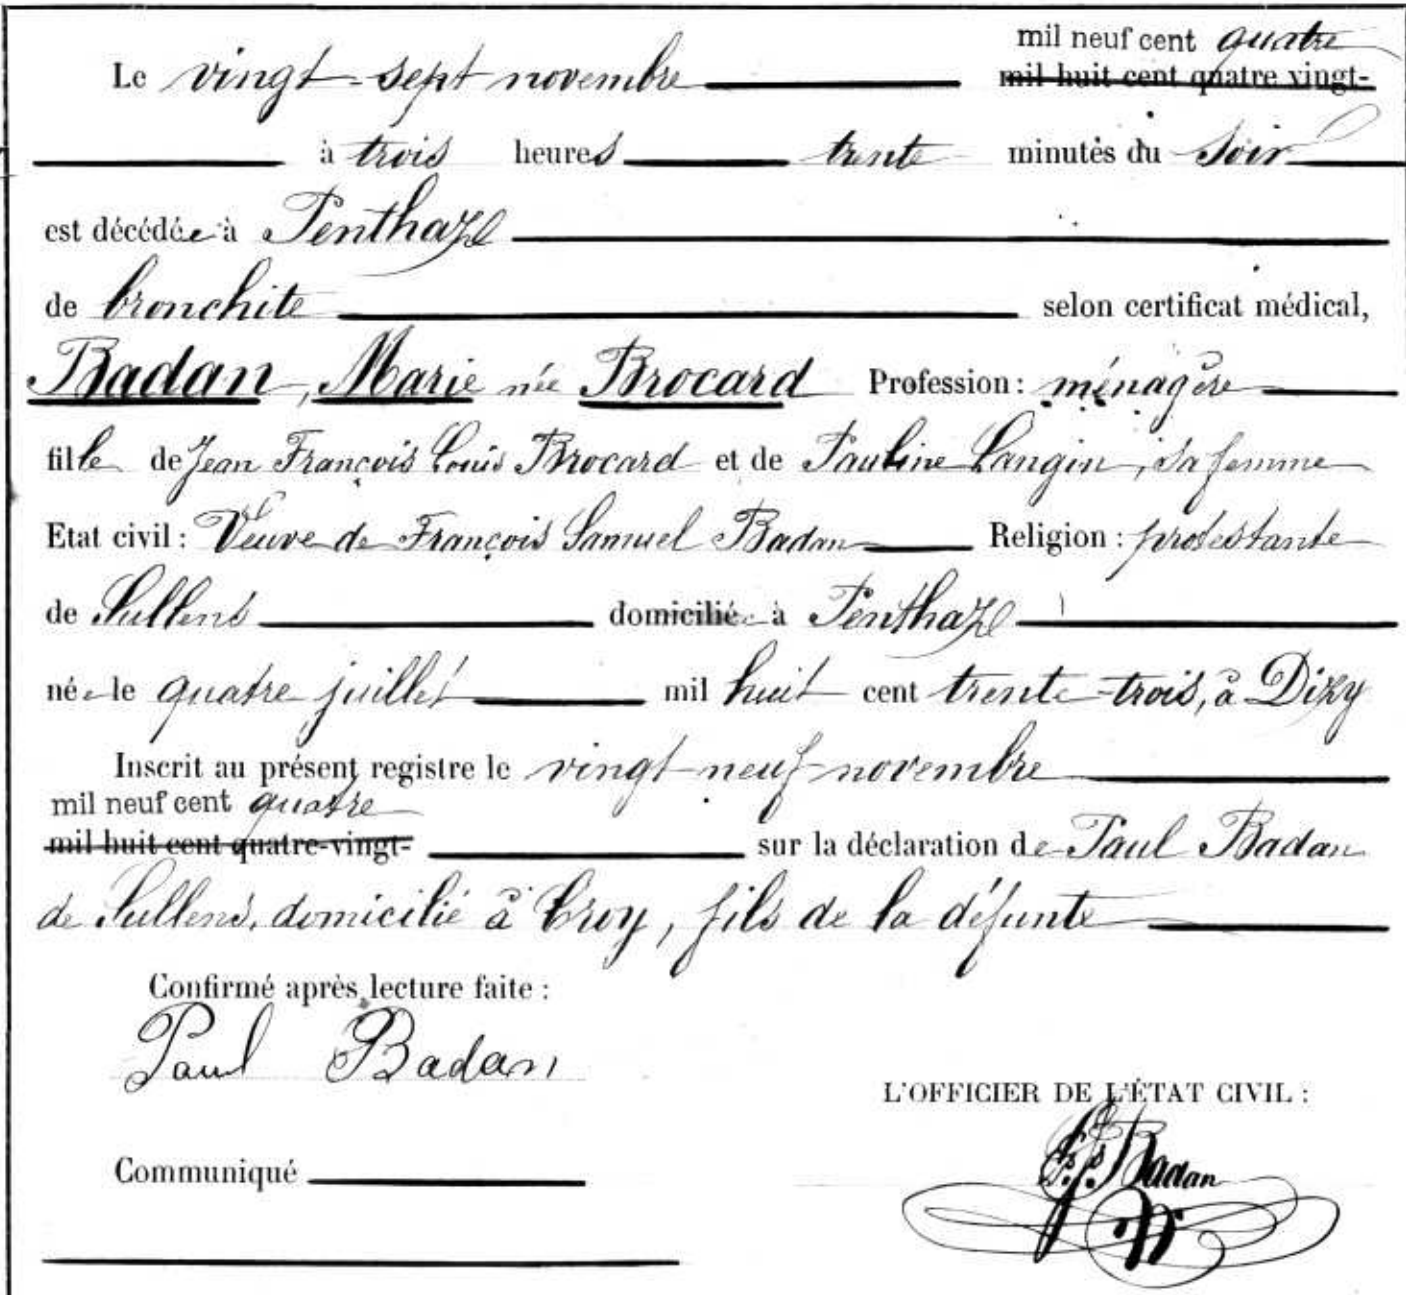 mil neuf cent quatre
Le vingt-sept novembre mil huit cent quatre vingt-
à trois heures trente minutes du soir
est décédée à Penthaz
de bronchite selon certificat médical,
Badan, Marie née Brocard Profession: ménagère
fille de Jean François Louis Brocard et de Pauline Langin, sa femme
Etat civil: Veuve de François Samuel Badan Religion: protestante
de Sullens domiciliée à Penthaz
née le quatre juillet mil huit cent trente-trois, à Dizy
Inscrit au présent registre le vingt-neuf novembre
mil neuf cent quatre
mil huit cent quatre-vingt- sur la déclaration de Paul Badan
de Sullens, domicilié à Croy, fils de la défunte
Confirmé après lecture faite:
Paul Badan
L'OFFICIER DE L'ÉTAT CIVIL:
Badan
Communiqué